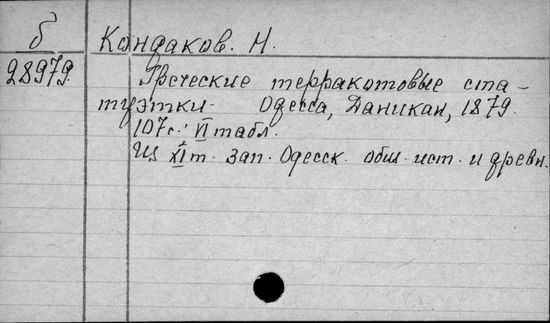 б
28979.
Кондаков. Н.
Греческие терракотовые ста-
туэтки. Одесса, Даникан, 1879.
107с.: VI табл.
Из XI т. зап. Одесск. общ. ист. и древн.